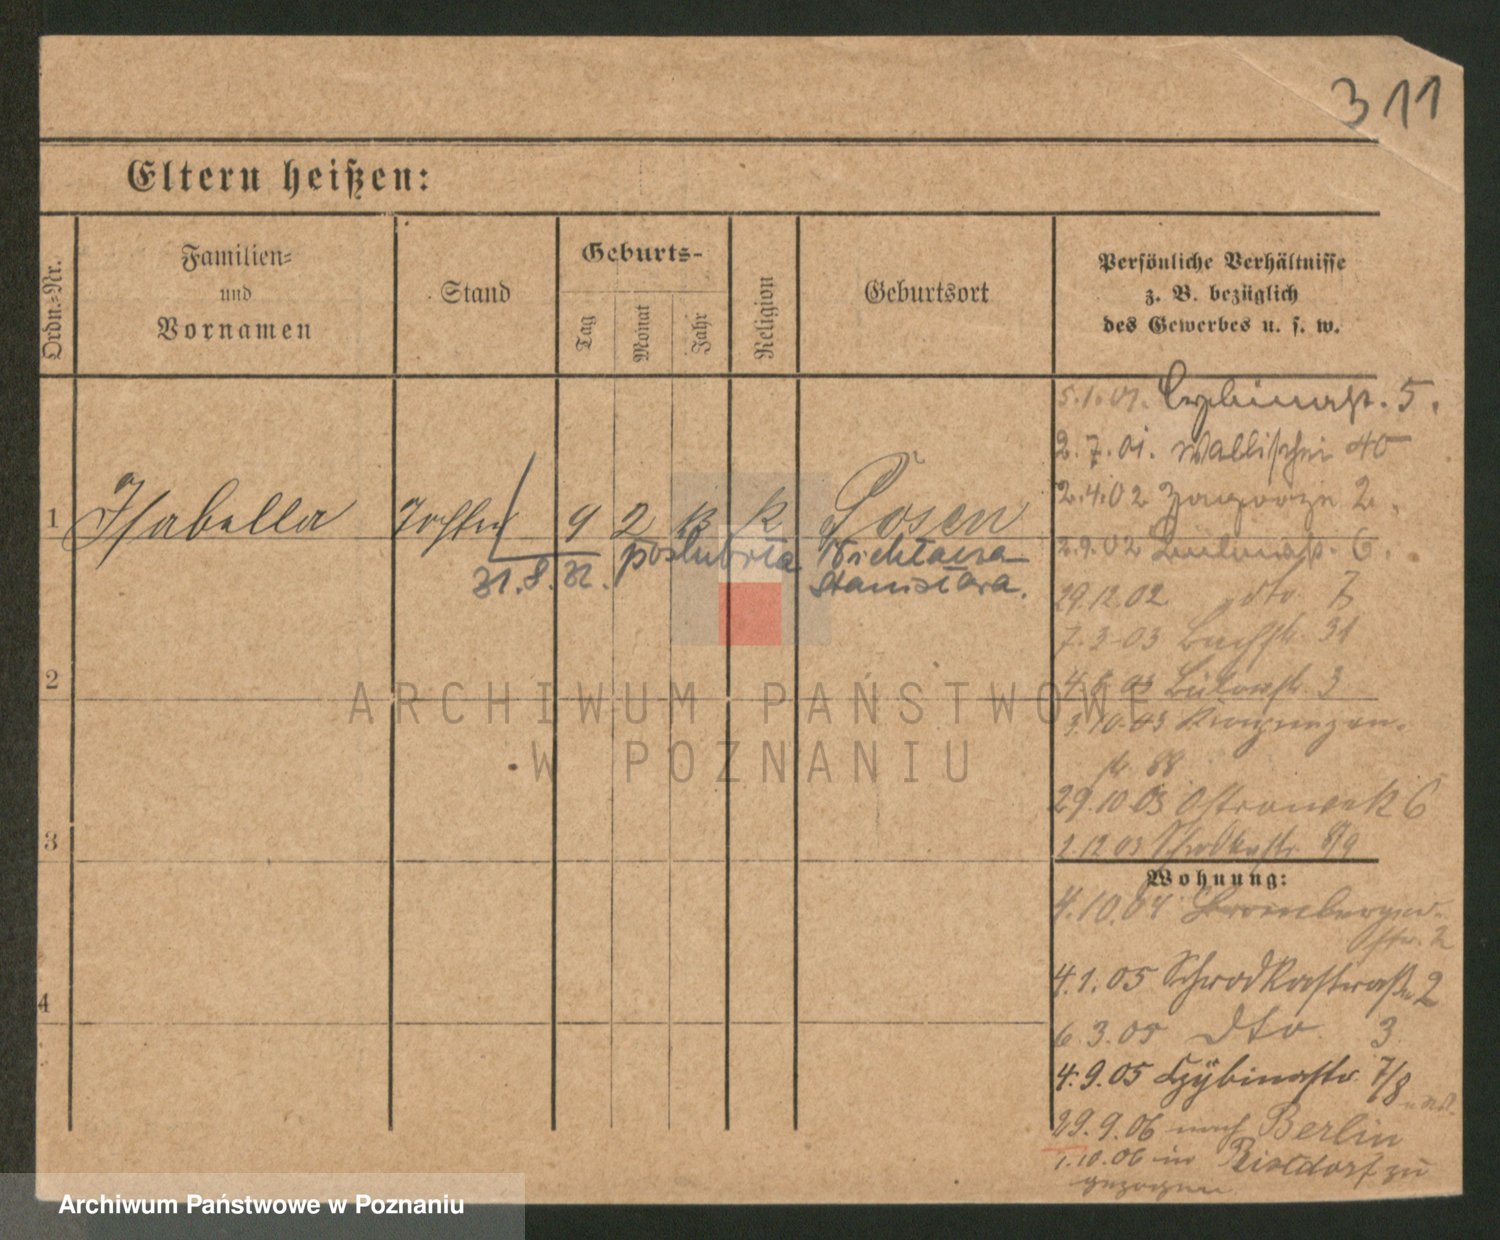 311
Eltern heißen:
Ordn.=Nr.
Familien=
und
Vornamen
Stand
Geburts-
Tag
Monat
Jahr
Religion
Geburtsort
Persönliche Verhältnisse
z. B. bezüglich
des Gewerbes u. s. w.
5.1.01. Cybinastr. 5.
2.7.01. Wallischei 40
2.4.02 Zagorze 2.
1 Isabella Tochter 9 2 K Posen
2.9.02 6.
31.8.32. poslubiła Michtaera
Stanisława.
29.12.02 dto 7
7.3.03 Bachstr. 31
2
4.8.03 3
3.10.03
str. 88
29.10.03 Ostrowek 6
3
1.12.03 Schrodkastr. 8/9
Wohnung:
4.10.04 Bromberger-
str. 2
4
4.1.05 Schrodkastraße 2
6.3.05 dto 3
4.9.05 Cybinastr. 7/8
29.9.06 nach Berlin
1.10.06 in zu
gezogen
ARCHIWUM PAŃSTWOWE
W POZNANIU
Archiwum Państwowe w Poznaniu